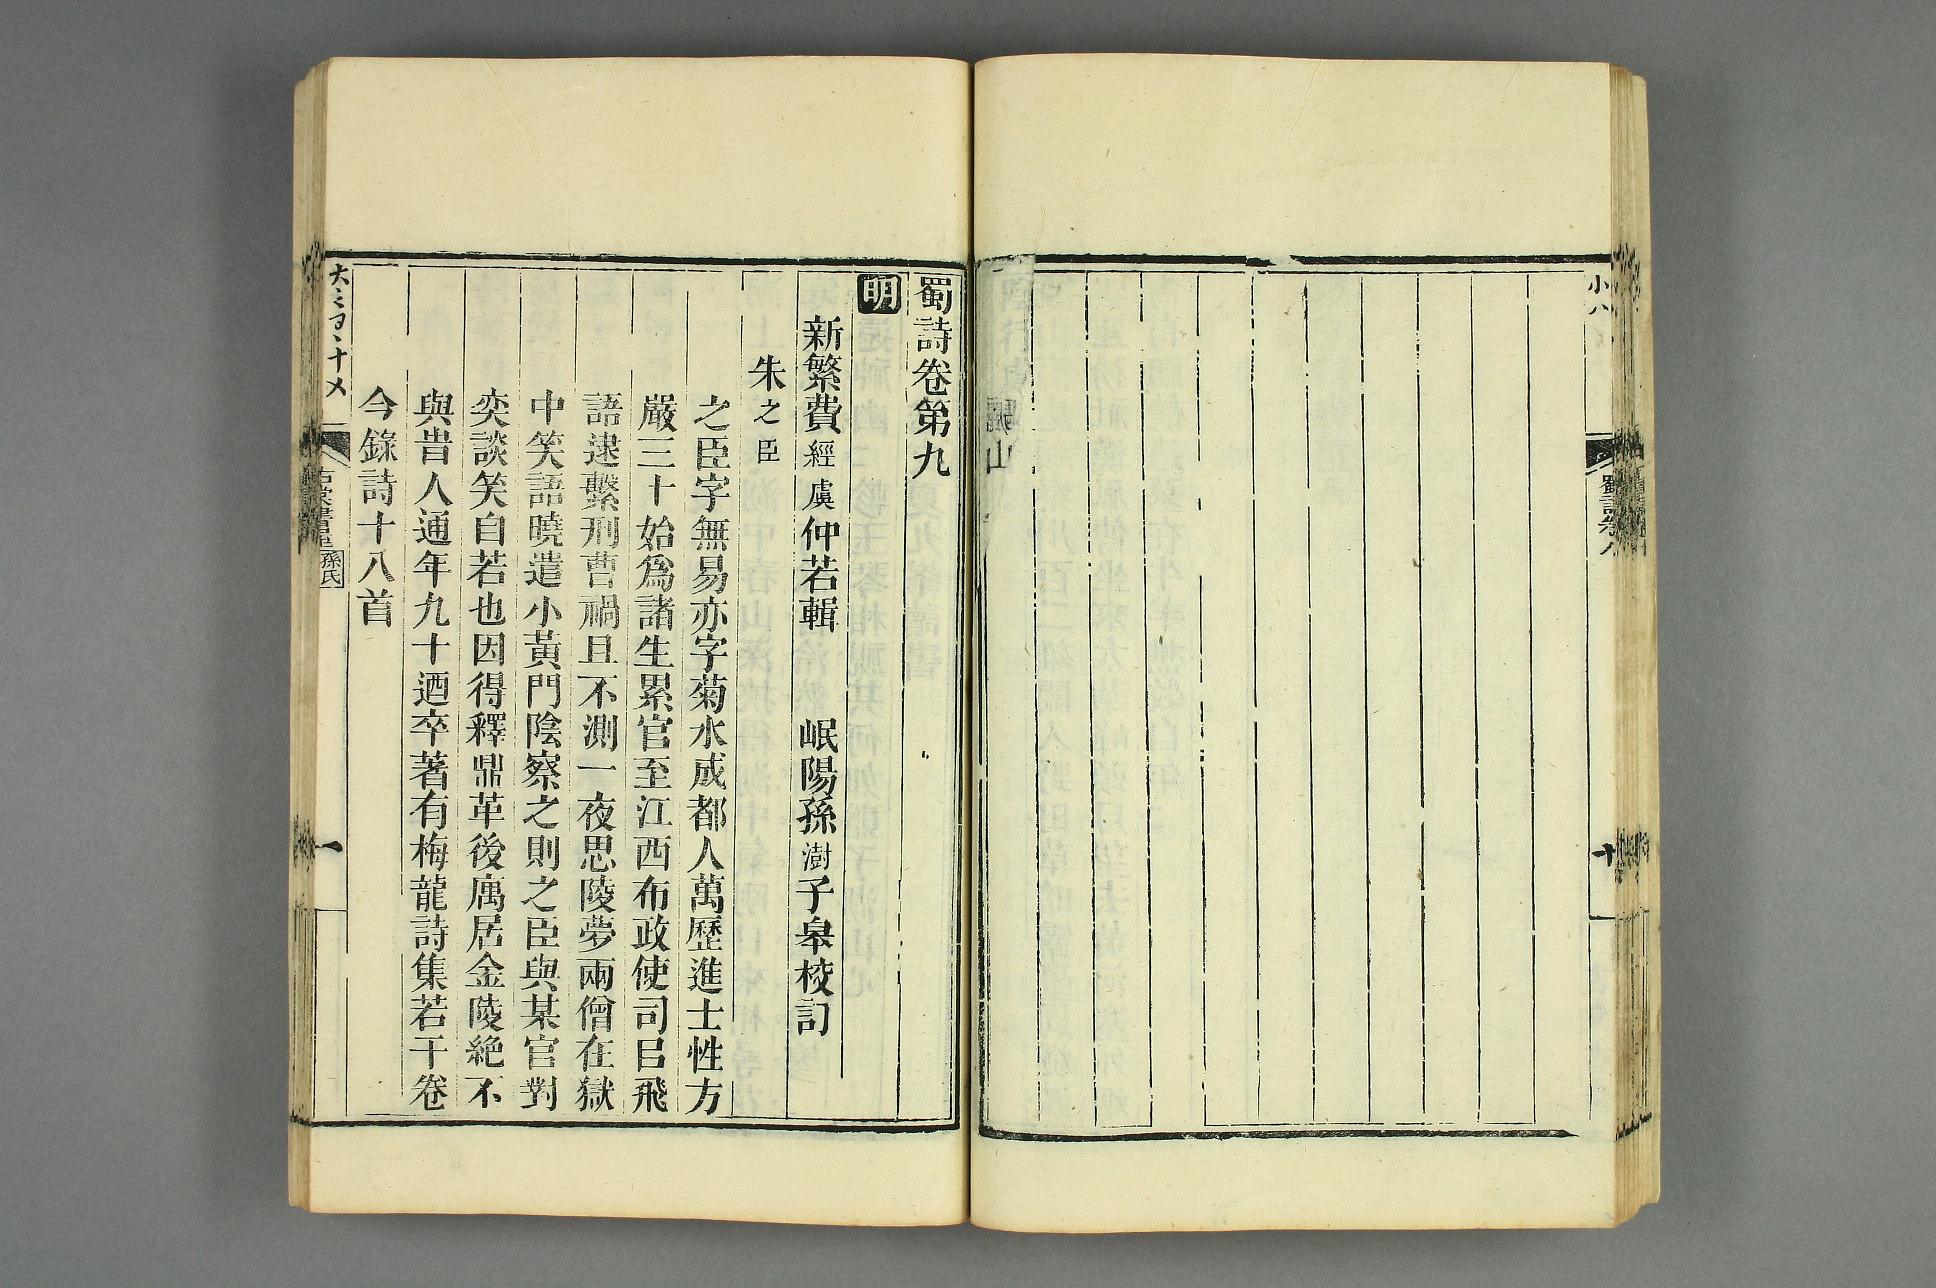 小八
蜀詩卷八
十
驪山
蜀詩卷第九
明
新繁費經虞仲若輯 岷陽孫澍子皋校訂
朱之臣
之臣字無易亦字菊水成都人萬歷進士性方
嚴三十始為諸生累官至江西布政使司㠯飛
語逮繫刑曹禍且不測一夜思陵夢兩僧在獄
中笑語曉遣小黃門陰察之則之臣與某官對
奕談笑自若也因得釋鼎革後寓居金陵絶不
與昔人通年九十迺卒著有梅龍詩集若干卷
今錄詩十八首
古棠書屋 孫氏
一